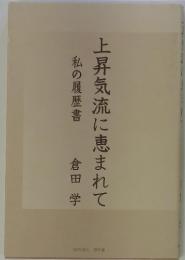 上昇気流に恵まれて
私の履歴書
倉田 学